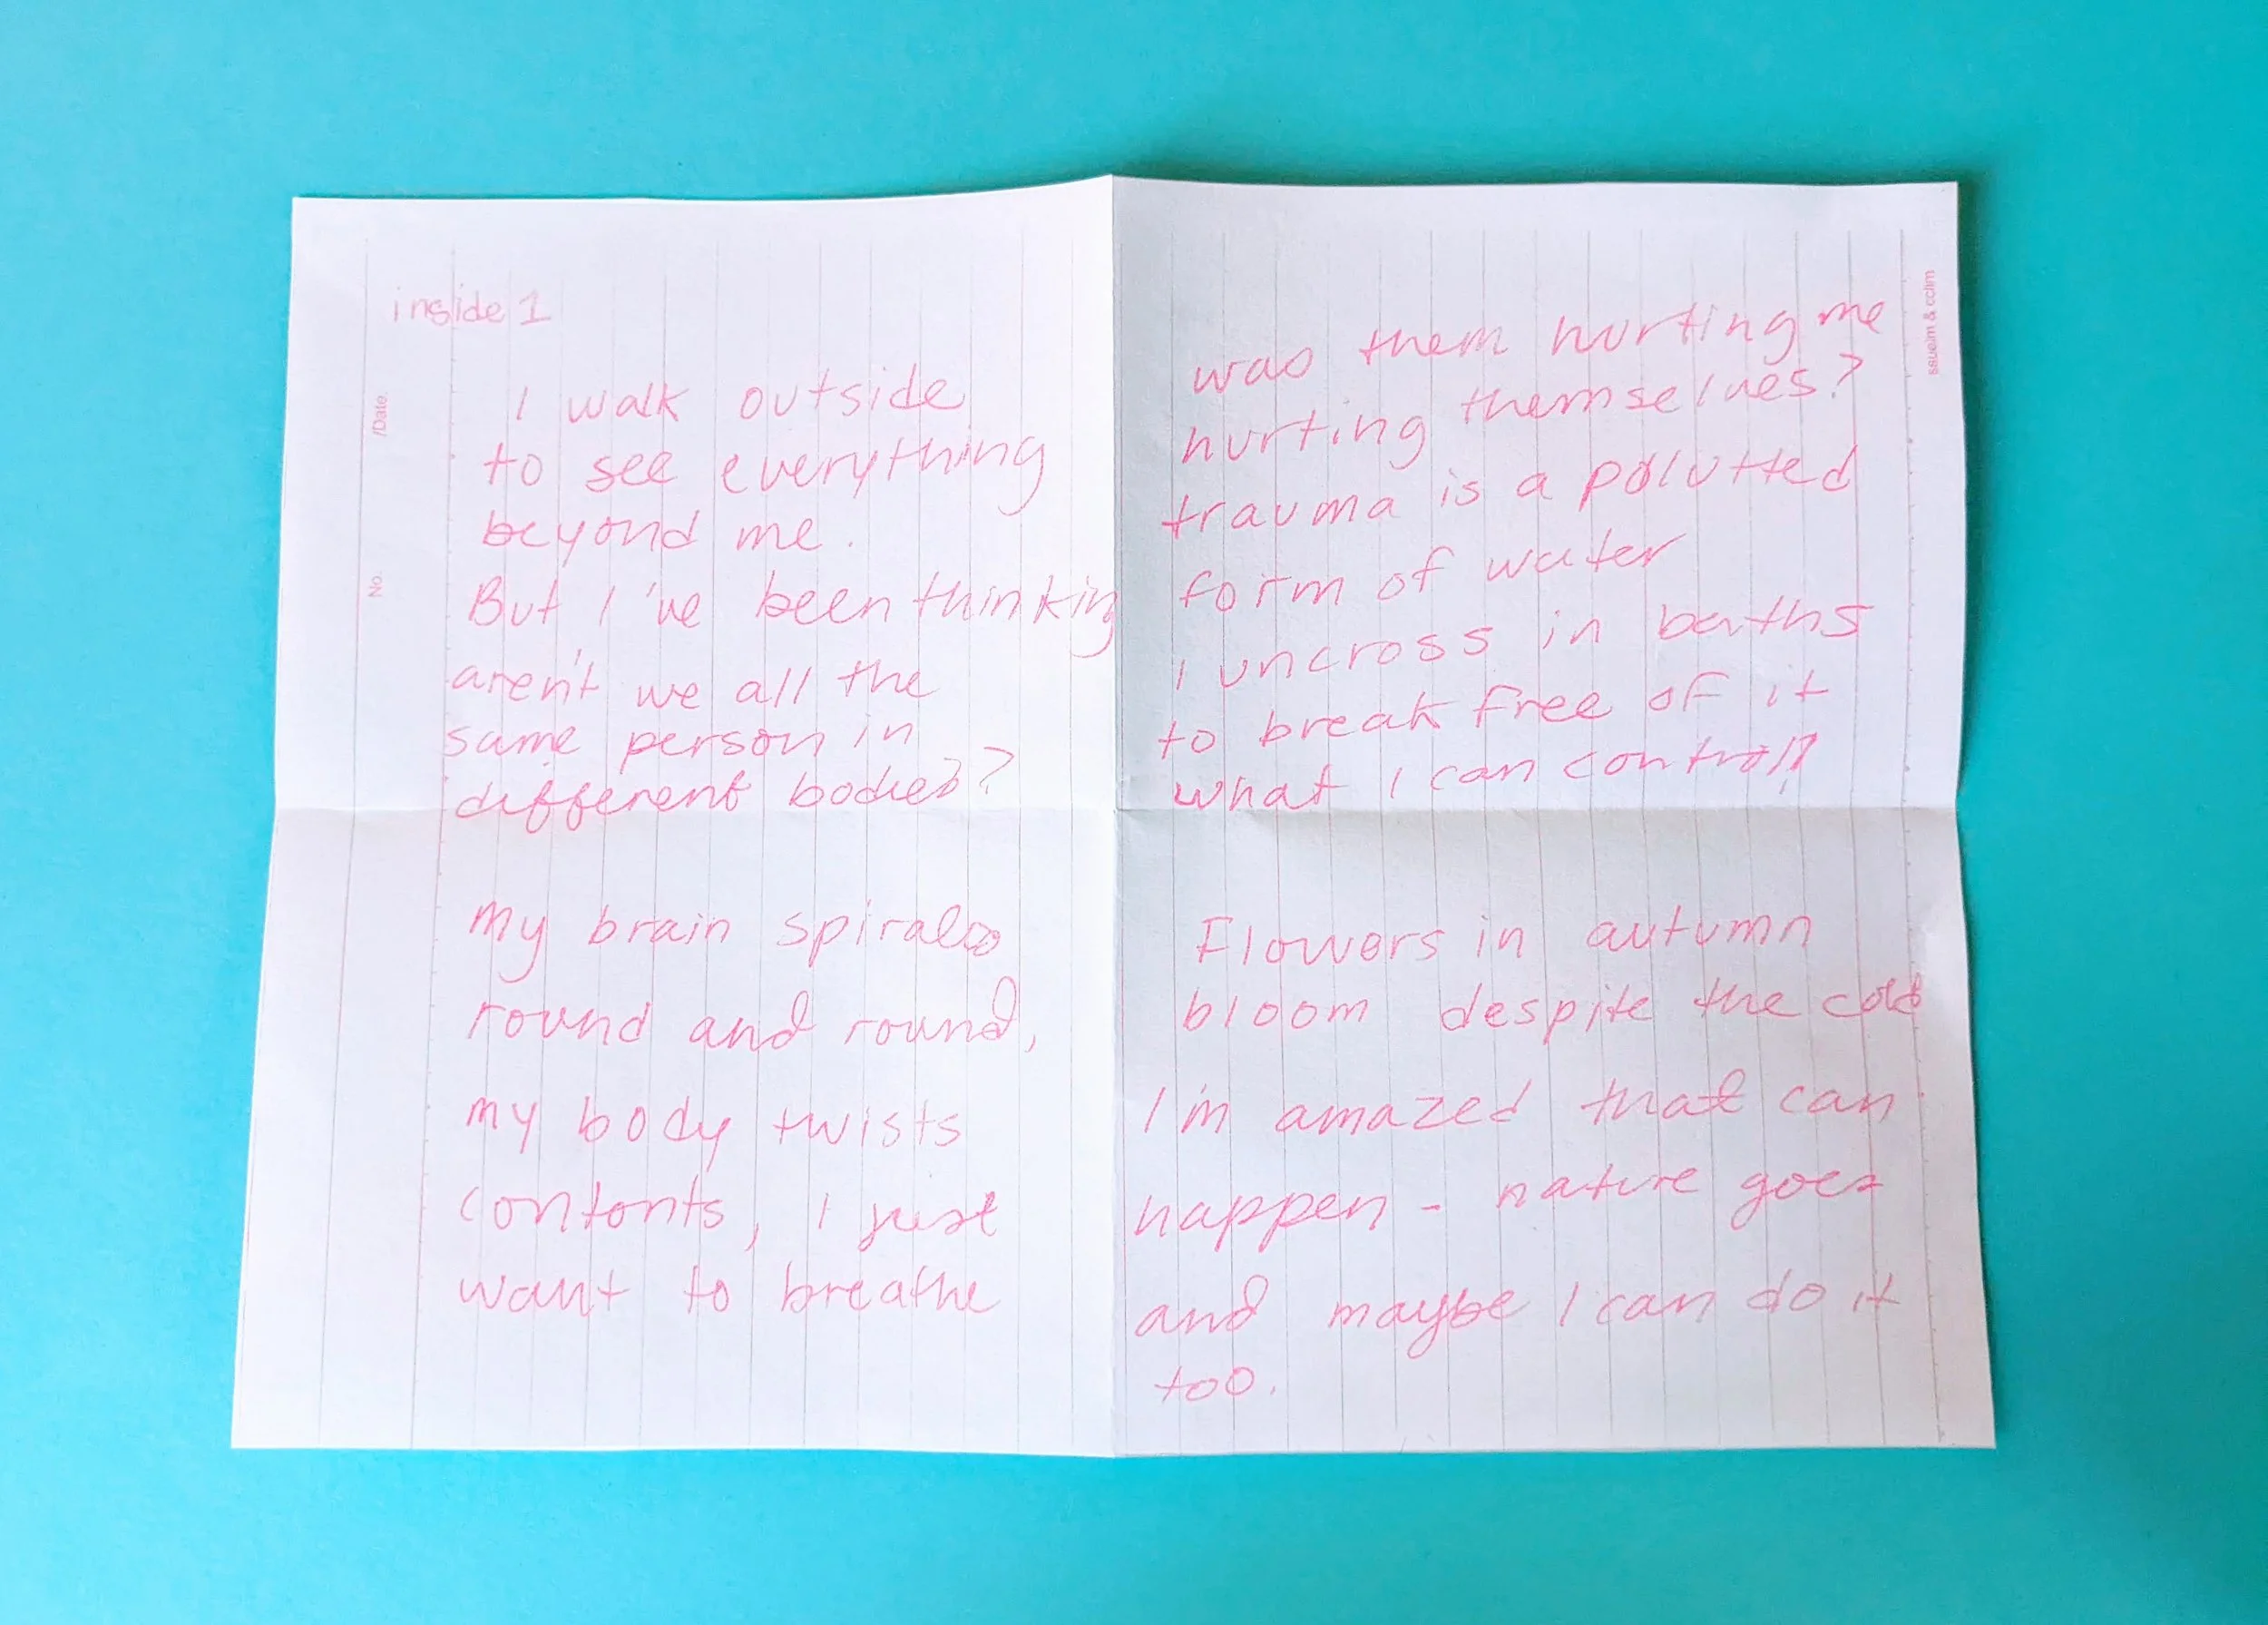 inside 1
I walk outside
to see everything
beyond me.
But I've been thinking
aren't we all the
same person in
different bodies?
was them hurting me
hurting themselves?
trauma is a polutted
form of water
I uncross in baths
to break free of it
what I can control?
My brain spirals
round and round,
my body twists
contonts, I just
want to breathe
Flowers in autumn
bloom despite the cold
I'm amazed that can
happen - nature goes
and maybe I can do it
too.
/Date.
No.